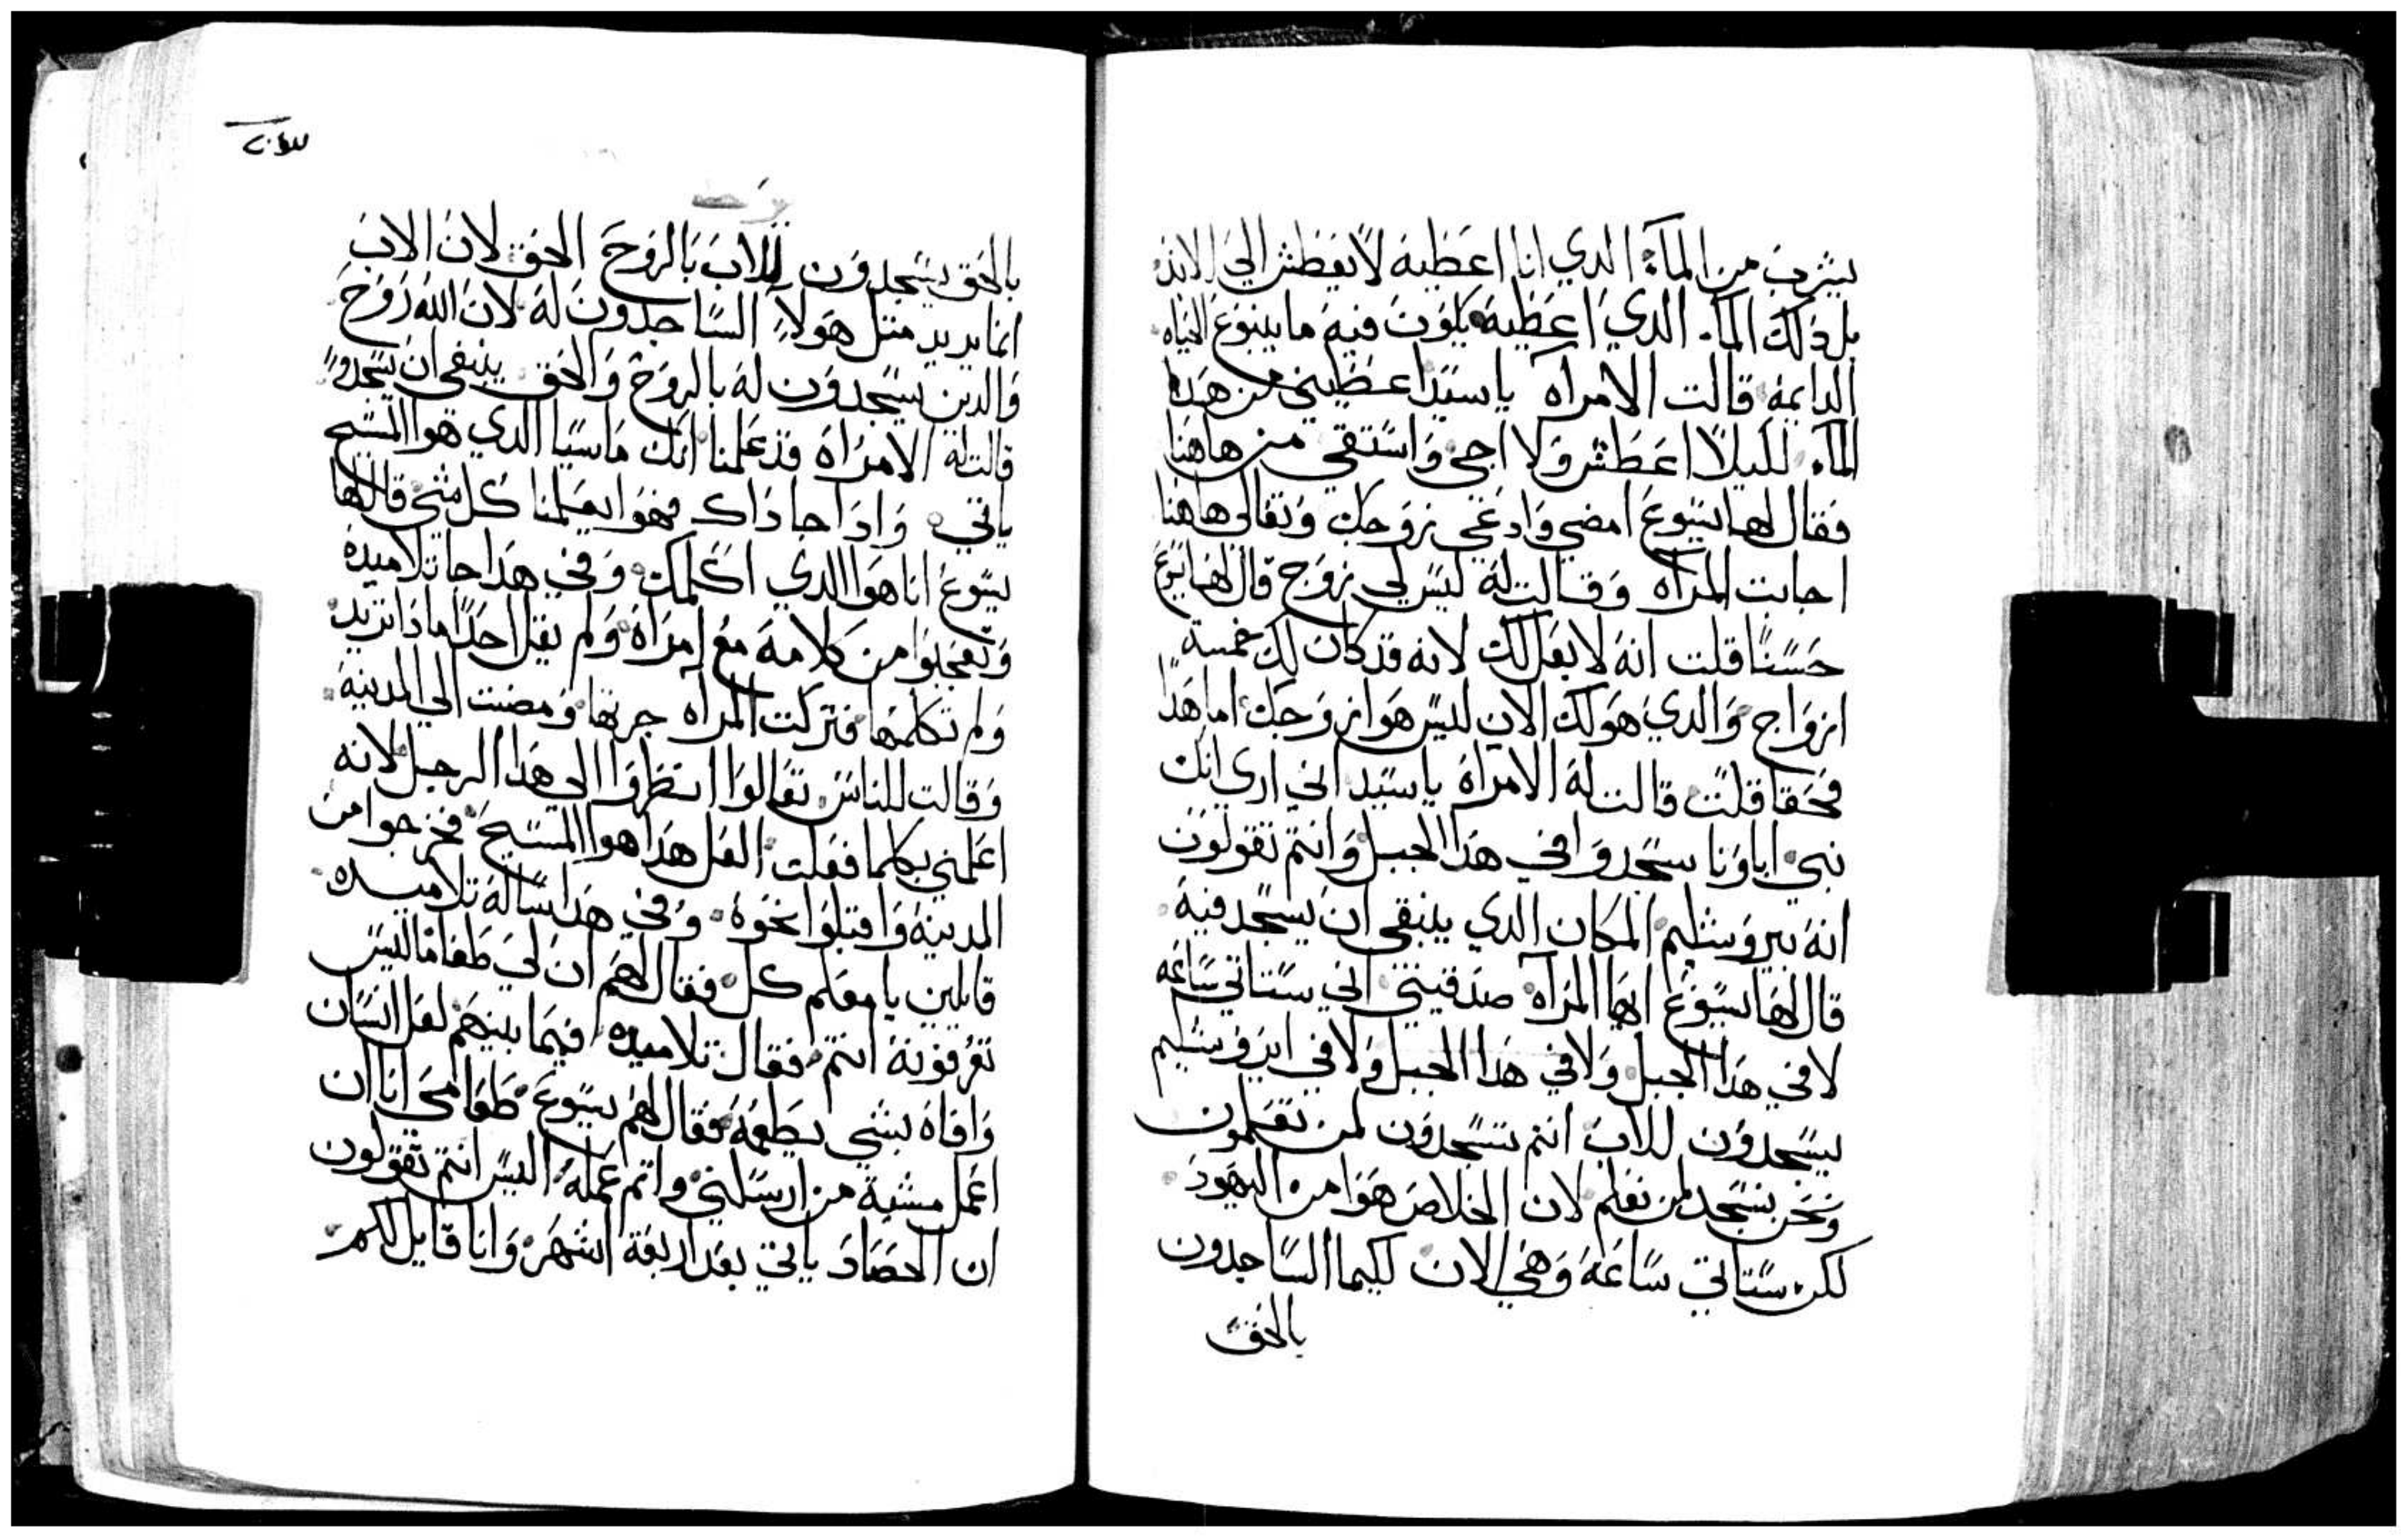 يشرب من المآء الدي انا اعطيه لا يعطش الي الابد
بل دلك المآء الدي اعطيه يكون فيه ما ينبوع الحياه
الدايمه قالت الامراه يا سيد اعطيني من هدا
المآء لكيلا اعطش ولا اجي واستقي من هاهنا
فقال لها يسوع امضي وادعي زوجك وتعالي هاهنا
اجابت المراه وقالت له ليس لي زوج قال لها يسوع
حسنا قلت انه لا بعل لك لانه قد كان لك خمسة
ازواج والدي هو لك الان ليس هوا زوجك اما هدا
فحقا قلت قالت له الامراه يا سيد اني اري انك
نبي اباونا سجدوا في هدا الجبل وانتم تقولون
انه بيروشليم المكان الدي ينبغي ان يسجد فيه
قال لها يسوع ايها المراه صدقيني اني ستاتي ساعه
لا في هدا الجبل ولا في هدا الجبل ولا في ايروشليم
يسجدون للاب انتم تسجدون لمن تعلمون
ونحن نسجد لمن نعلم لان الخلاص هوا من اليهود
لكن ستاتي ساعه وهي الان لكيما الساجدون
بالحق
بالحق يسجدون للاب بالروح الحق لان الاب
انما يريد متل هولاء الساجدون له لان الله روح
والدين يسجدون له بالروح والحق ينبغي ان يسجدوا
قالت له الامراه قد علمنا انك ماسيا الدي هوا المسيح
ياتي وادا جا داك فهوا يعلمنا كل شي قال لها
يسوع انا هوا الدي اكلمك وفي هدا جا تلاميده
وتعجبوا من كلامه مع امراه ولم يقل احدا مادا تريد
ولم تكلمها فتركت المراه جرتها ومضت الي المدينه
وقالت للناس تعالوا انظروا الي هدا الرجل لانه
اعلمني بكلما فعلت العل هدا هوا المسيح فخرجوا من
المدينه واقبلوا نحوه وفي هدا ساله تلاميده
قايلين يا معلم كل فقال لهم ان لي طعاما ليس
تعرفونه انتم فقال تلاميده فيما بينهم لعل انسان
وافاه بشي يطعمه فقال لهم يسوع طعامي انا ان
اعمل مشية من ارسلني واتم عمله اليس انتم تقولون
ان الحصاد ياتي بعد اربعة اشهر وانا قايل لكم